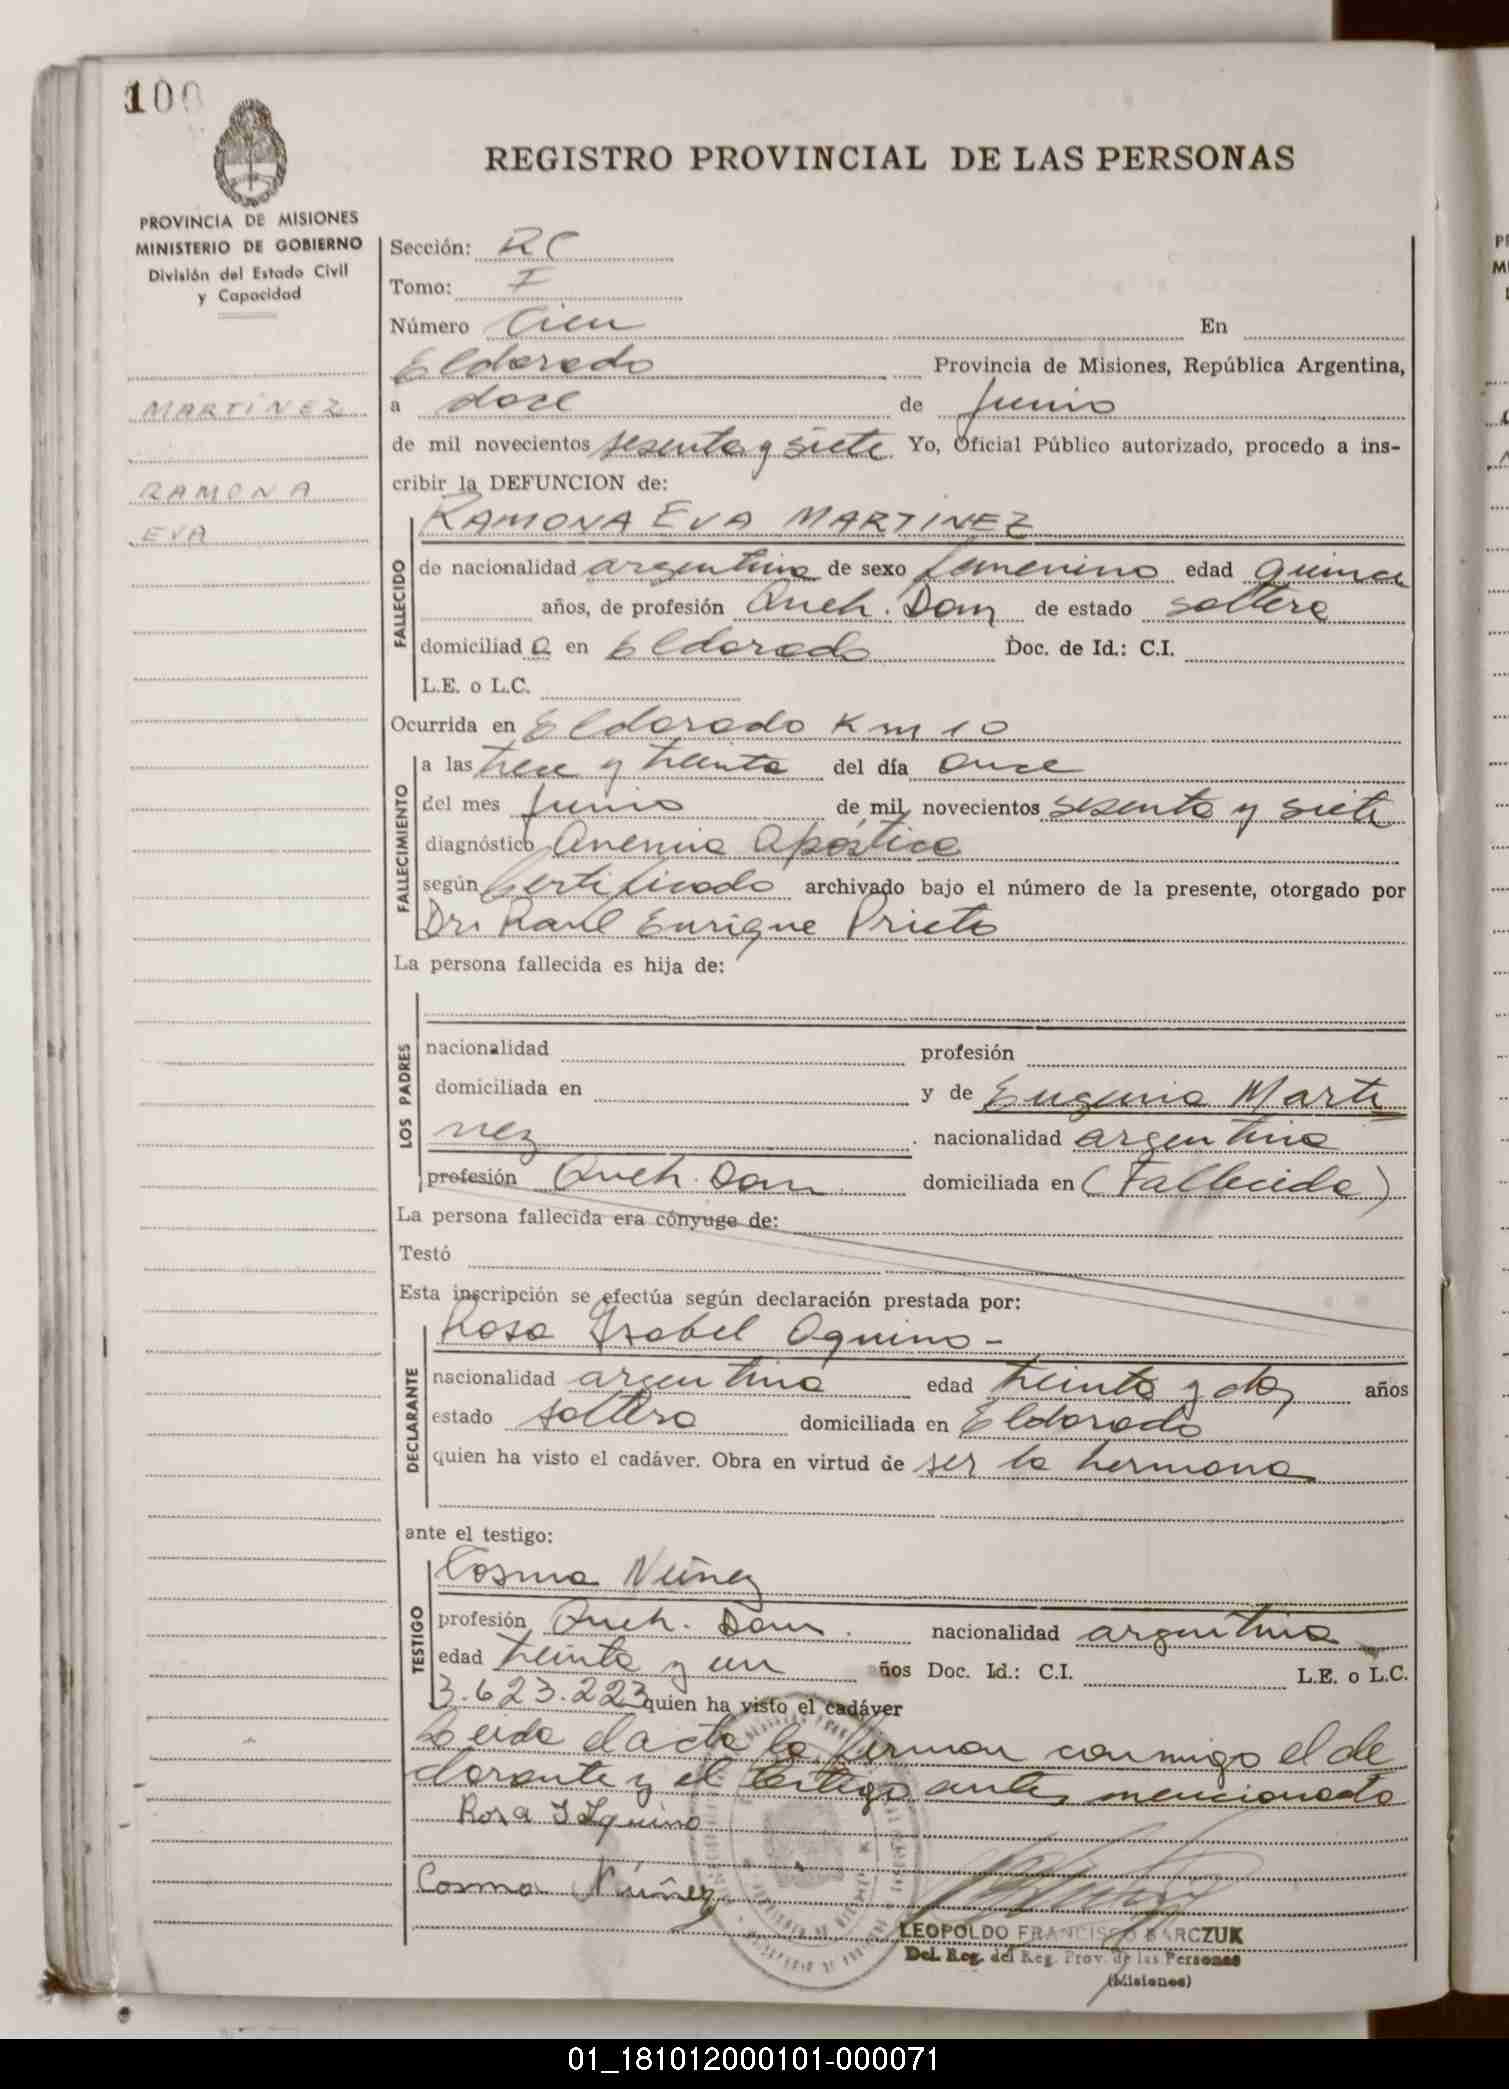 100
REGISTRO PROVINCIAL DE LAS PERSONAS
PROVINCIA DE MISIONES
MINISTERIO DE GOBIERNO
División del Estado Civil
y Capacidad
MARTINEZ
RAMONA
EVA
Sección: RC
Tomo: I
Número Cien En
Eldorado Provincia de Misiones, República Argentina,
a doce de Junio
de mil novecientos sesenta y siete Yo, Oficial Público autorizado, procedo a ins-
cribir la DEFUNCION de:
RAMONA EVA MARTINEZ
FALLECIDO
de nacionalidad argentina de sexo femenino edad quince
años, de profesión Queh. Dom de estado soltera
domiciliad a en Eldorado Doc. de Id.: C.I.
L.E. o L.C.
Ocurrida en Eldorado Km 10
FALLECIMIENTO
a las trece y treinta del día once
del mes Junio de mil novecientos sesenta y siete
diagnóstico Anemia
según Certificado archivado bajo el número de la presente, otorgado por
Dr. Raul Enrique Prieto
La persona fallecida es hija de:
LOS PADRES
nacionalidad profesión
domiciliada en y de Eugenia Marti
nez nacionalidad argentina
profesión Queh. Dom domiciliada en (Fallecida)
La persona fallecida era cónyuge de:
Testó
Esta inscripción se efectúa según declaración prestada por:
Rosa Isabel Aquino -
DECLARANTE
nacionalidad argentina edad treinta y dos años
estado soltera domiciliada en Eldorado
quien ha visto el cadáver. Obra en virtud de ser la hermana
ante el testigo:
Cosma Núñez
TESTIGO
profesión Queh. Dom. nacionalidad argentina
edad treinta y un años Doc. Id.: C.I. L.E. o L.C.
3.623.223 quien ha visto el cadáver
Leida el acta la firman conmigo el de
clarante y el testigo antes mencionado
Rosa I Aquino
Cosma Núñez
LEOPOLDO FRANCISCO BARCZUK
Del. Reg. del Reg. Prov. de las Personas
(Misiones)
01_181012000101-000071